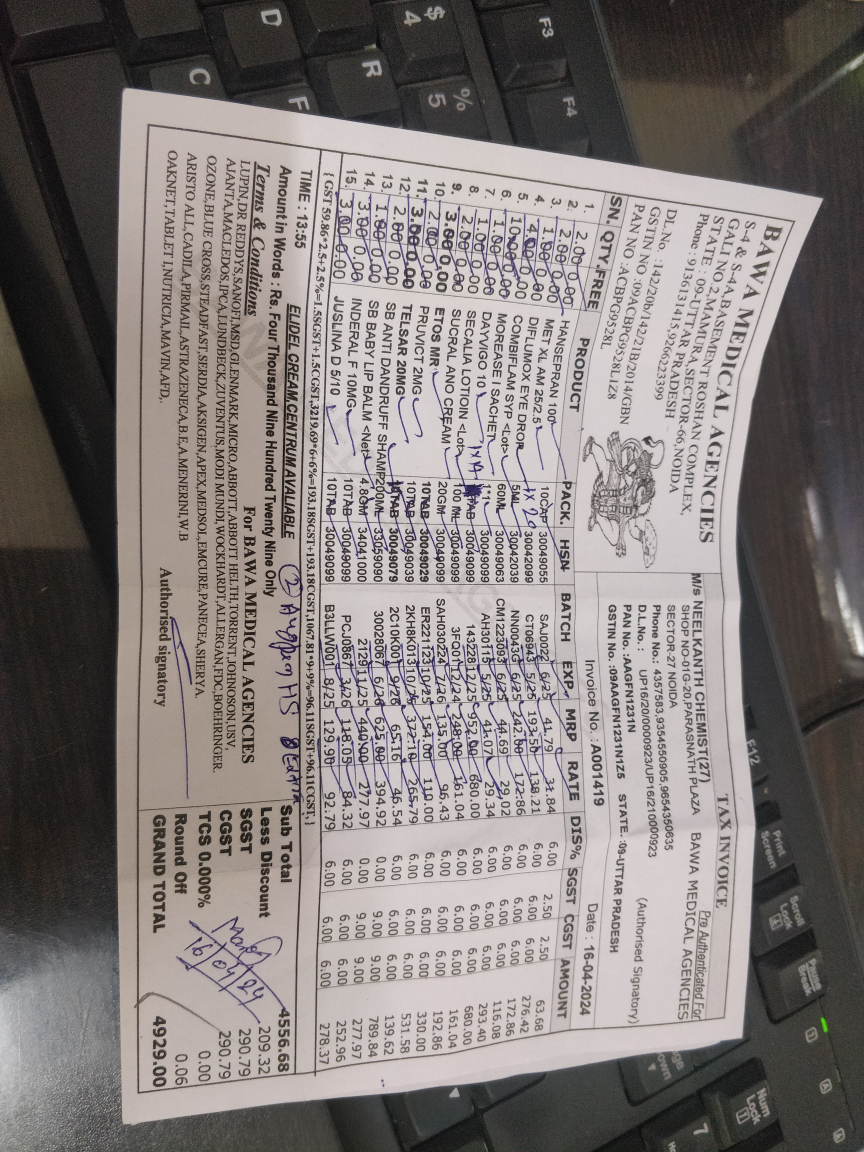 BAWA MEDICAL AGENCIES
S-4 & S-4A,BASEMENT ROSHAN COMPLEX,
GALI NO-2,MAMURA,SECTOR-66,NOIDA
STATE : 09-UTTAR PRADESH
Phone : 9136131415,9266223399
DL.No. :142/20b/142/21B/2014/GBN
GSTIN NO :09ACBPG9528L1Z8
PAN NO :ACBPG9528L
TAX INVOICE
Pre Authenticated For
BAWA MEDICAL AGENCIES
M/s NEELKANTH CHEMIST(27)
SHOP NO-01G-20,PARASNATH PLAZA
SECTOR-27 NOIDA
Phone No.: 4357583,9354550905,9654350635
D.L.No. : UP16/20/0000923/UP16/210000923
PAN No. :AAGFN1231N
GSTIN No. :09AAGFN1231N1Z5 STATE. :09-UTTAR PRADESH
(Authorised Signatory)
Invoice No. : A001419 Date : 16-04-2024
SN. QTY.FREE PRODUCT PACK. HSN BATCH EXP. MRP RATE DIS% SGST CGST AMOUNT
1. 2.00 0.00 HANSEPRAN 100 10CAP 30049055 SAJ0022 6/25 41.79 31.84 6.00 2.50 2.50 63.68
2. 2.00 0.00 MET XL AM 25/2.5 30042099 CT06943 5/25 193.50 138.21 6.00 6.00 6.00 276.42
3. 1.00 0.00 DIFLUMOX EYE DROP 5ML 30042039 NN0043G 6/25 242.00 172.86 6.00 6.00 6.00 172.86
4. 4.00 0.00 COMBIFLAM SYP <Lot> 60ML 30049063 CM1223093 6/25 44.69 29.02 6.00 6.00 6.00 116.08
5. 10.00 0.00 MOREASE I SACHET 1*1 30049099 AH30115 5/25 41.07 29.34 6.00 6.00 6.00 293.40
6. 1.00 0.00 DAYVIGO 10 30049099 143228 12/25 952.00 680.00 6.00 6.00 6.00 680.00
7. 1.00 0.00 SECALIA LOTIOIN <Lot> 100 ML 30049099 3FQ01 12/24 248.00 161.04 6.00 6.00 6.00 161.04
8. 2.00 0.00 SUCRAL ANO CREAM 20GM 30049099 SAH030224 7/26 135.00 96.43 6.00 6.00 6.00 192.86
9. 3.00 0.00 ETOS MR 10TAB 30049029 ER221123 10/25 154.00 110.00 6.00 6.00 6.00 330.00
10. 2.00 0.00 PRUVICT 2MG 10TAB 30049039 2KH8K013 10/25 372.10 265.79 6.00 6.00 6.00 531.58
11. 3.00 0.00 TELSAR 20MG 14TAB 30049079 2C10K001 9/26 65.16 46.54 6.00 6.00 6.00 139.62
12. 2.00 0.00 SB ANTI DANDRUFF SHAMP 200ML 33059090 30028067 6/26 625.00 394.92 0.00 9.00 9.00 789.84
13. 1.00 0.00 SB BABY LIP BALM <Net> 4.8GM 34041000 2129 11/25 440.00 277.97 0.00 9.00 9.00 277.97
14. 3.00 0.00 INDERAL F 10MG 10TAB 30049099 PCJ0867 3/26 118.05 84.32 6.00 6.00 6.00 252.96
15. 3.00 0.00 JUSLINA D 5/10 10TAB 30049099 B3LLW001 8/25 129.90 92.79 6.00 6.00 6.00 278.37
1 x 20
1 x A
{GST 59.86*2.5+2.5%=1.5SGST+1.5CGST,3219.69*6+6%=193.18SGST+193.18CGST,1067.81*9+9%=96.11SGST+96.11CGST,}
TIME : 13:55 ELIDEL CREAM,CENTRUM AVALIABLE
Amount in Words : Rs. Four Thousand Nine Hundred Twenty Nine Only
Terms & Conditions For BAWA MEDICAL AGENCIES
LUPIN,DR REDDYS,SANOFI,MSD,GLENMARK,MICRO,ABBOTT,ABBOTT HELTH,TORRENT,JOHNSON,USV,
AJANTA,MACLEDOS,IPCA,LUNDBECK,ZUVENTUS,MODI MUNDI,WOCKHARDT,ALLERGAN,FDC,BOEHRINGER.
OZONE,BLUE CROSS,STEADFAST,SERDIA,AKSIGEN,APEX,MEDSOL,EMCURE,PANECEA,SHERYA
ARISTO ALL,CADILA,PIRMAIL,ASTRAZENECA,B.E,A.MENERINI,W.B
OAKNET,TABLET I,NUTRICIA,MAVIN,AFD,.
Authorised signatory
Sub Total 4556.68
Less Discount 209.32
SGST 290.79
CGST 290.79
TCS 0.000% 0.00
Round Off 0.06
GRAND TOTAL 4929.00
16/04/24
F3
F4
$
4
%
5
R
D
F
C
F12
Print
Screen
Scroll
Lock
Pause
Break
Num
Lock
7